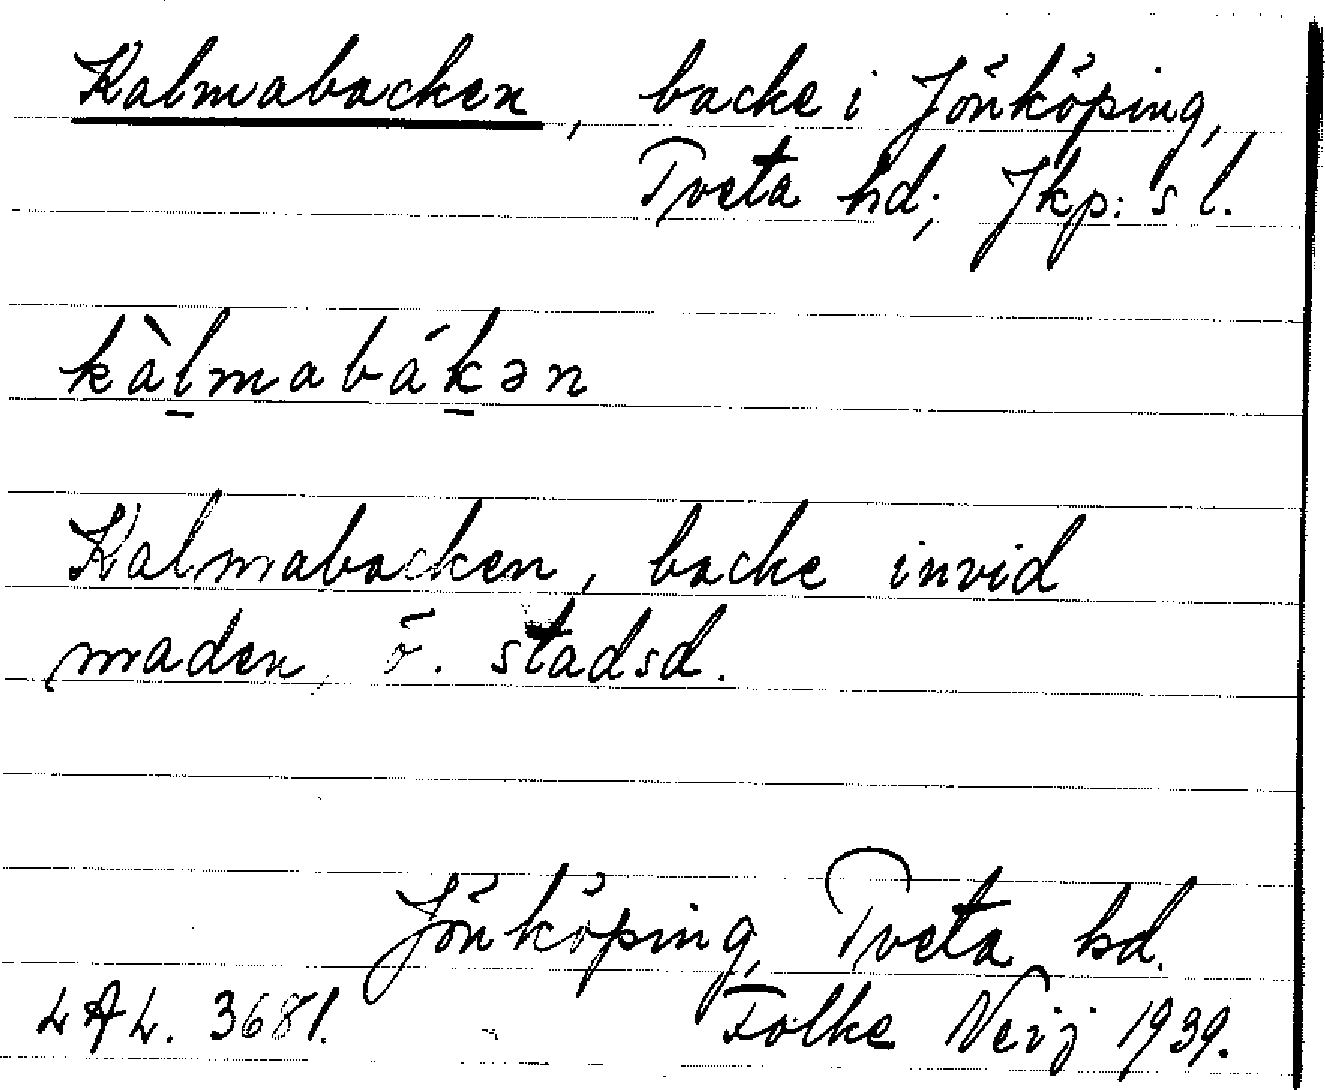 Kalmabacken, backe i Jönköping,
Tveta hd; Jkp: s l.
kàl̠mabák̠ən
Kalmabacken, backe invid
maden, ö. stadsd.
Jönköping, Tveta hd.
LAL. 3681. Folke Neij 1939.